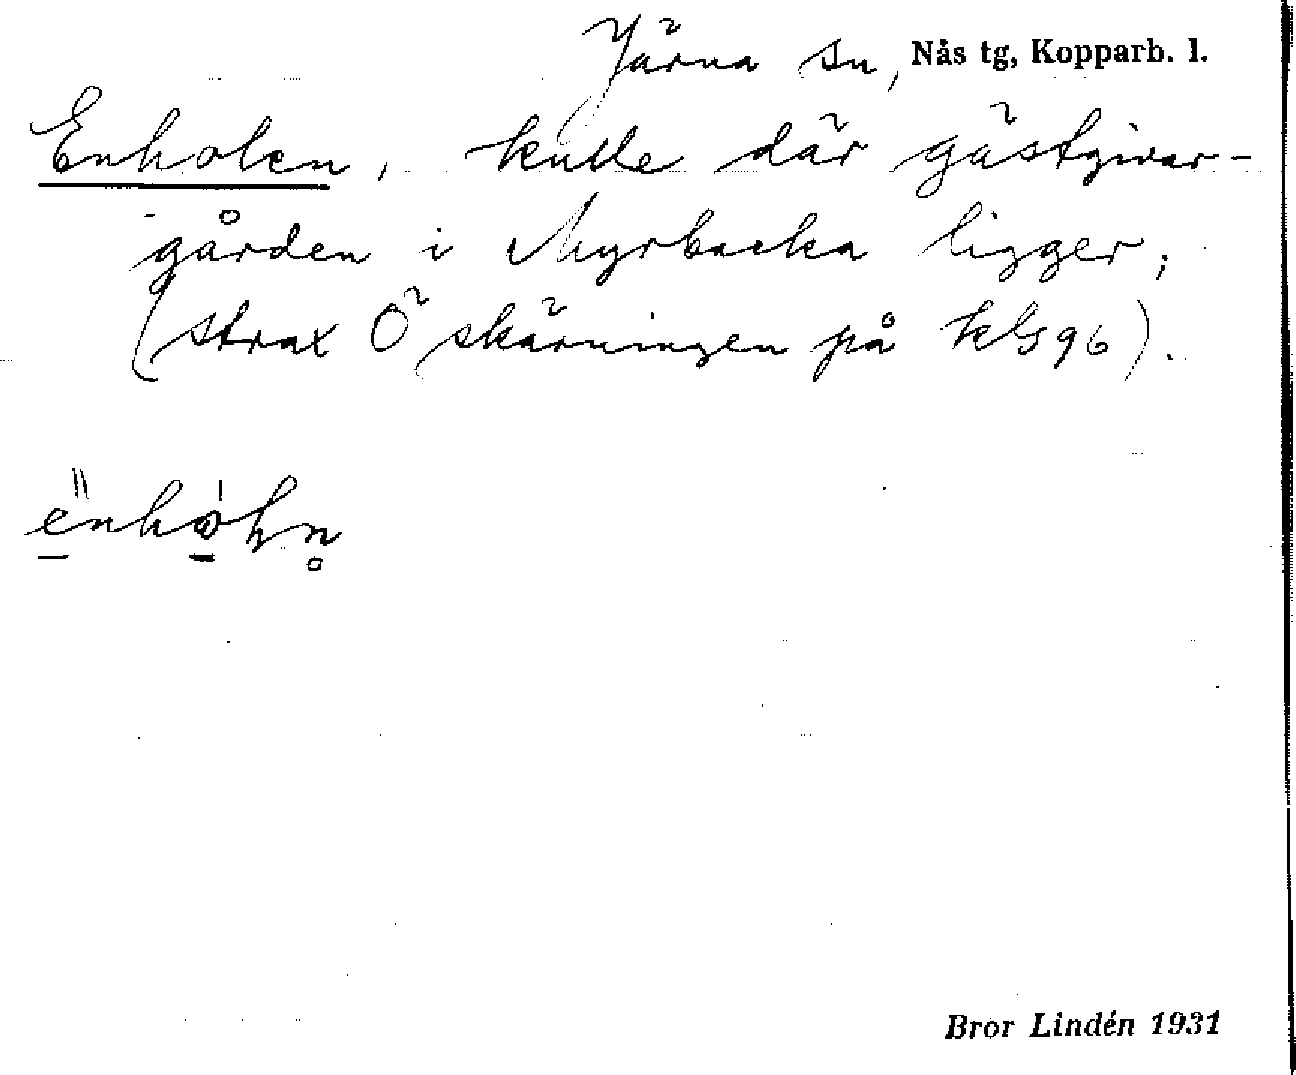 Järna sn, Nås tg, Kopparb. l.
Enholen, kulle där gästgivar-
gården i Myrbacka ligger;
(strax Ö skärningen på kbl 96).
Bror Lindén 1931